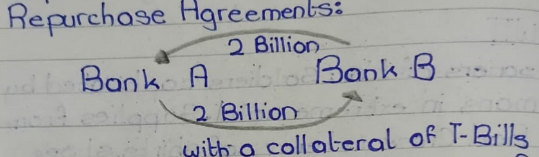 Repurchase Agreements:
2 Billion
Bank A Bank B
2 Billion
with a collateral of T-Bills